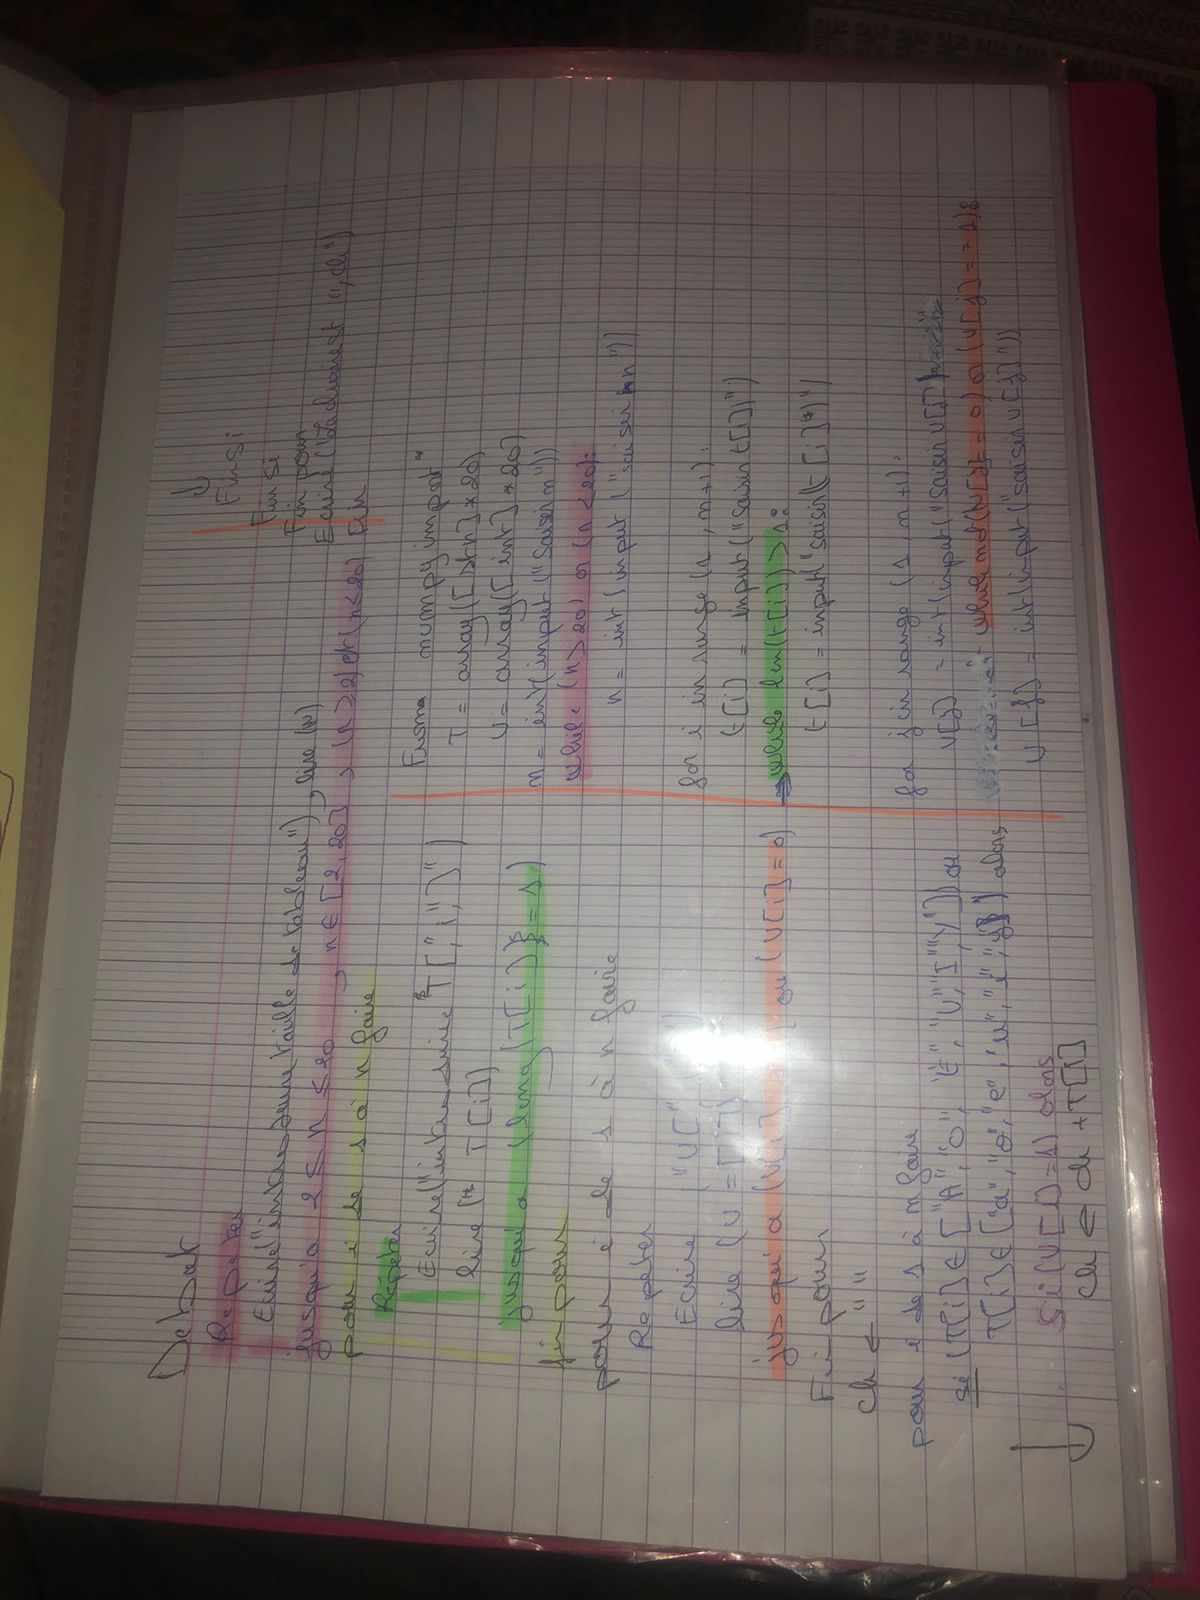 Debut
Repeter
Ecrire("intro une taille de tableau"), lire (n)
jusqu'a 2 ≤ n ≤ 20 , n ∈ [2,20] , (n ≥ 2) et (n ≤ 20)
pour i de 1 à n faire
Répéter
Ecrire("T[", i, "]")
lire ( T[i])
jusqu'a (long(T[i]) = 1)
fin pour
pour i de 1 à n faire
Repeter
Ecrire ("U["
lire (U = [i])
jusqu'a (U[i] ou (U[i] = 0)
Fin pour
ch ← " "
pour i de 1 à n faire
si (T[i] ∈ ["A", "O", "E", "U", "I", "Y"]) ou
T[i] ∈ ["a", "o", "e", "u", "i", "y"]) alors
Si (U[i] = 1) alors
ch ← ch + T[i]
↓
↓
Fin si
Fin si
Fin pour
Ecrire ("la ch , ch")
Fin
numpy import *
T = array([str] * 20)
U = array([int] * 20)
n = int(input ("Saisir n"))
while (n > 20) or (n < 20):
n = int (input ("saisir n"))
for i in range (1, n+1):
t[i] = input("saisir t[i]")
→ while len(t[i]) > 1:
t[i] = input("saisir(t[i]")
for j in range (1, n+1):
U[j] = int(input("saisir U[j]
while not (U[j] = 0) or (U[j] == 1):
U[j] = int(input("saisir U[j]"))